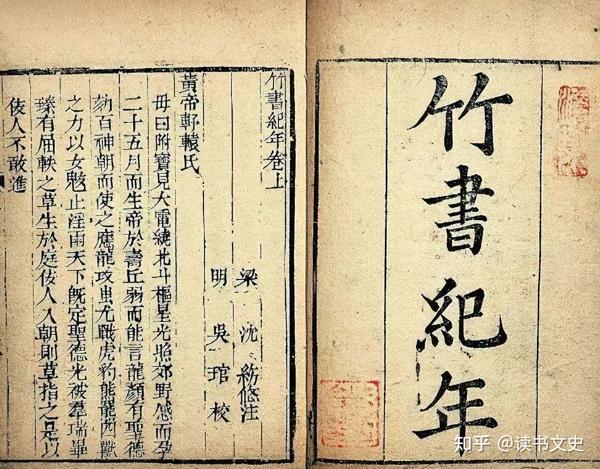 竹書紀年
竹書紀年卷上
梁 沈 約附注
明 吳 琯 校
黃帝軒轅氏
母曰附寶見大電繞北斗樞星光照郊野感而孕
二十五月而生帝於壽丘弱而能言龍顏有聖德
劾百神朝而使之應龍攻蚩尤戰虎豹熊羆四獸
之力以女魃止淫雨天下旣定聖德光被羣瑞畢
臻有屈軼之草生於庭佞人入朝則草指之是以
佞人不敢進
知乎 @读书文史